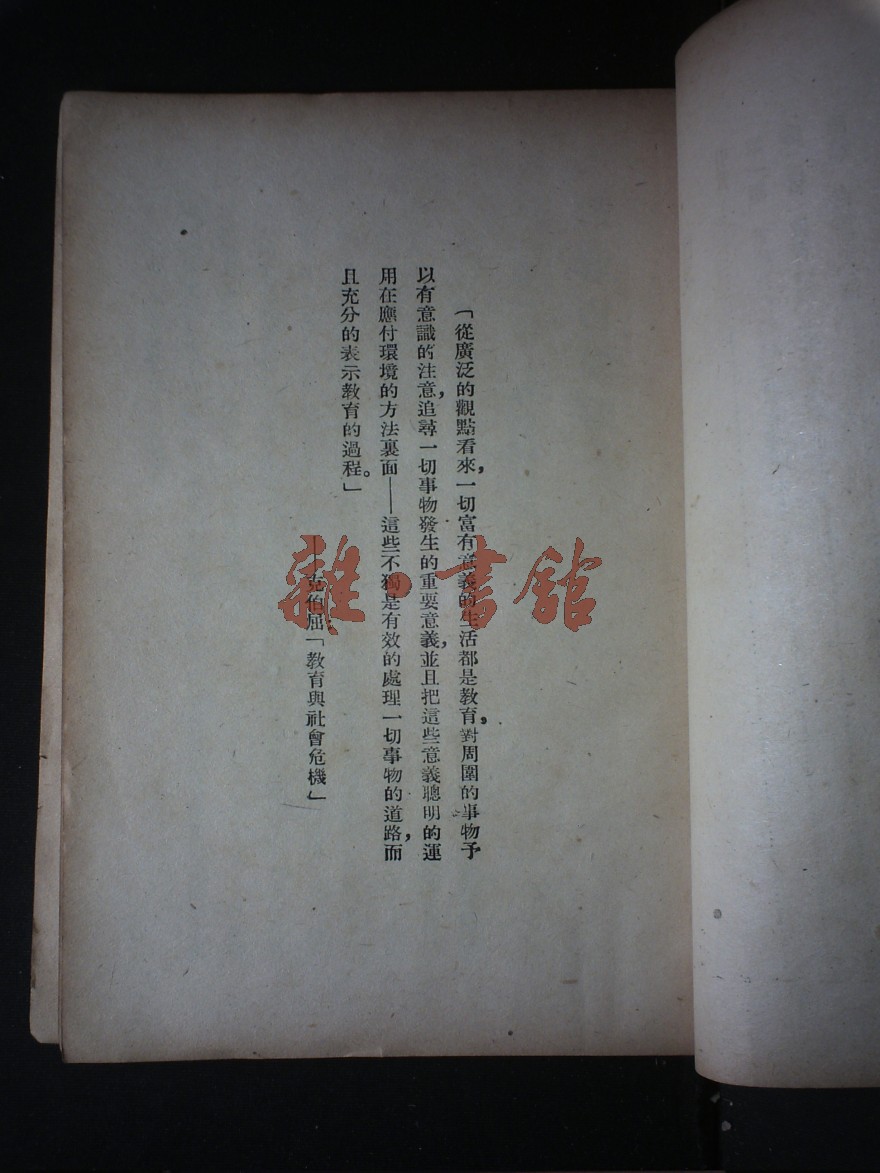 「從廣泛的觀點看來，一切富有意義的生活都是教育，對周圍的事物予
以有意識的注意，追尋一切事物發生的重要意義，並且把這些意義聰明的運
用在應付環境的方法裏面——這些不獨是有效的處理一切事物的道路，而
且充分的表示教育的過程。」
——克伯屈：「教育與社會危機」
雜·書館